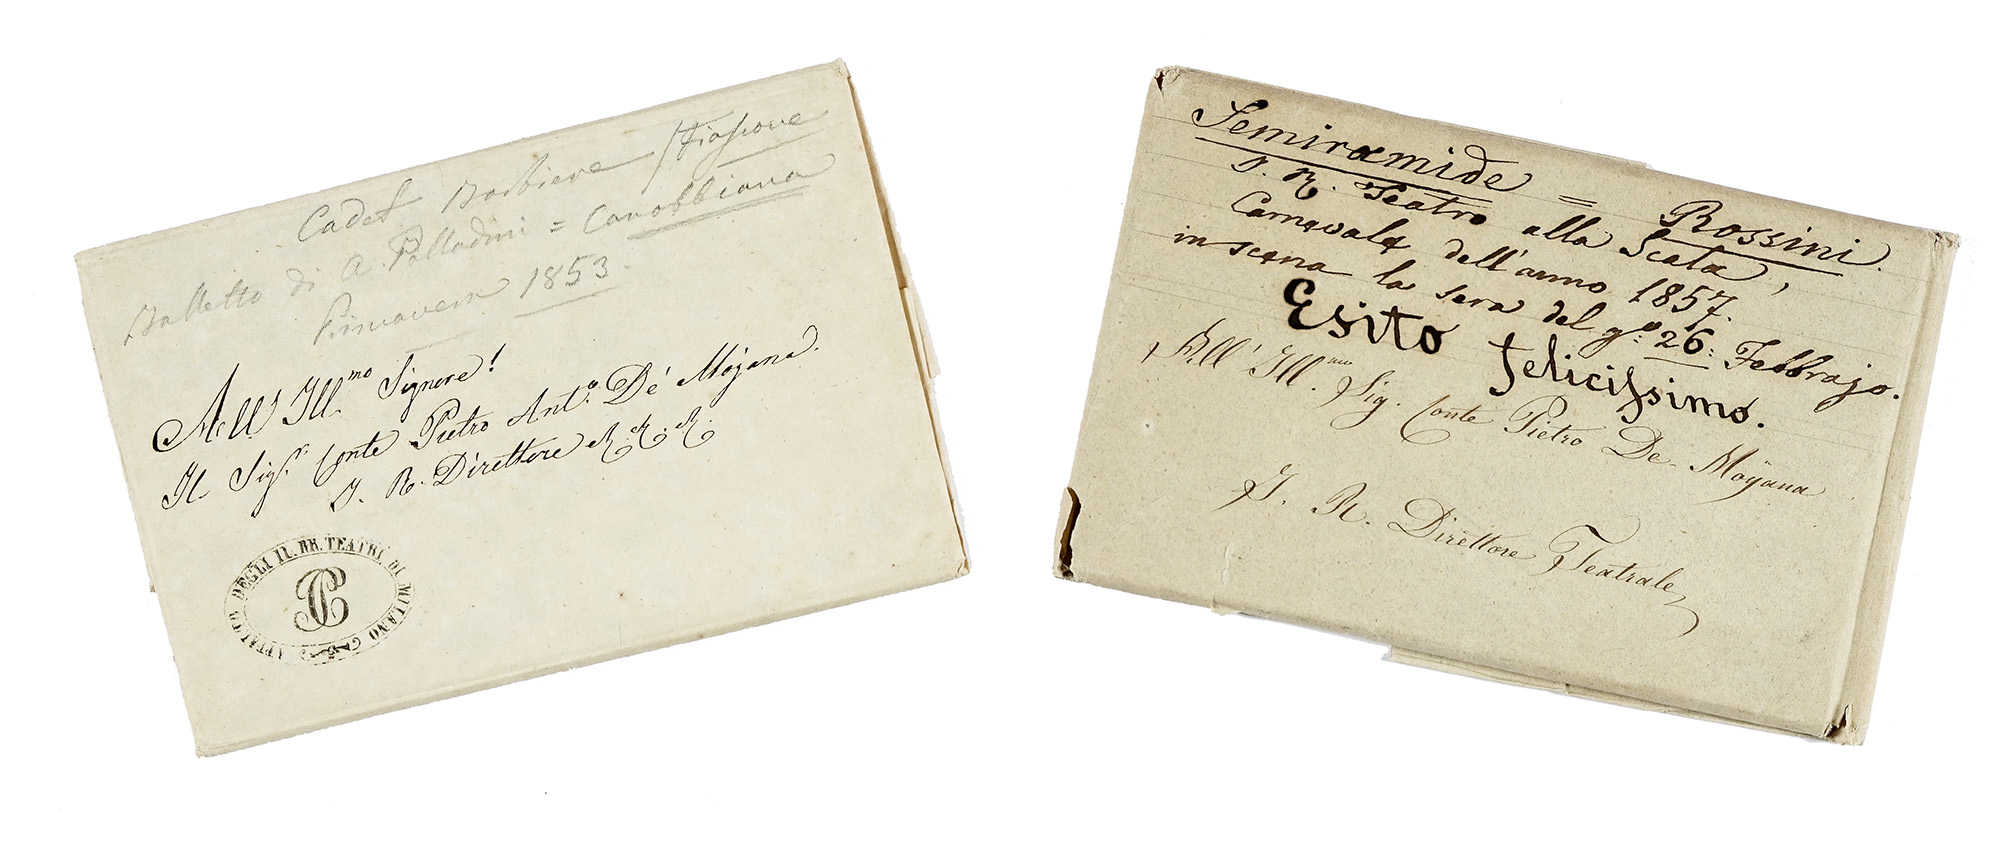 Cadet Barbiere / Fiasione
Balletto di A. Palladini = Canobbiana
Primavera 1853.
All' Ill.mo Signore!
Il Sig.r Conte Pietro Ant.o De' Mojana.
I. R. Direttore R. R. R.
APPALTO DEGLI II. RR. TEATRI DI MILANO
Semiramide = Rossini.
I. R. Teatro alla Scala,
Carnevale dell'anno 1857.
in scena la sera del g.o 26: Febbrajo.
Esito felicissimo.
All' Ill.mo Sig. Conte Pietro De-Moÿana
I. R. Direttore Teatrale